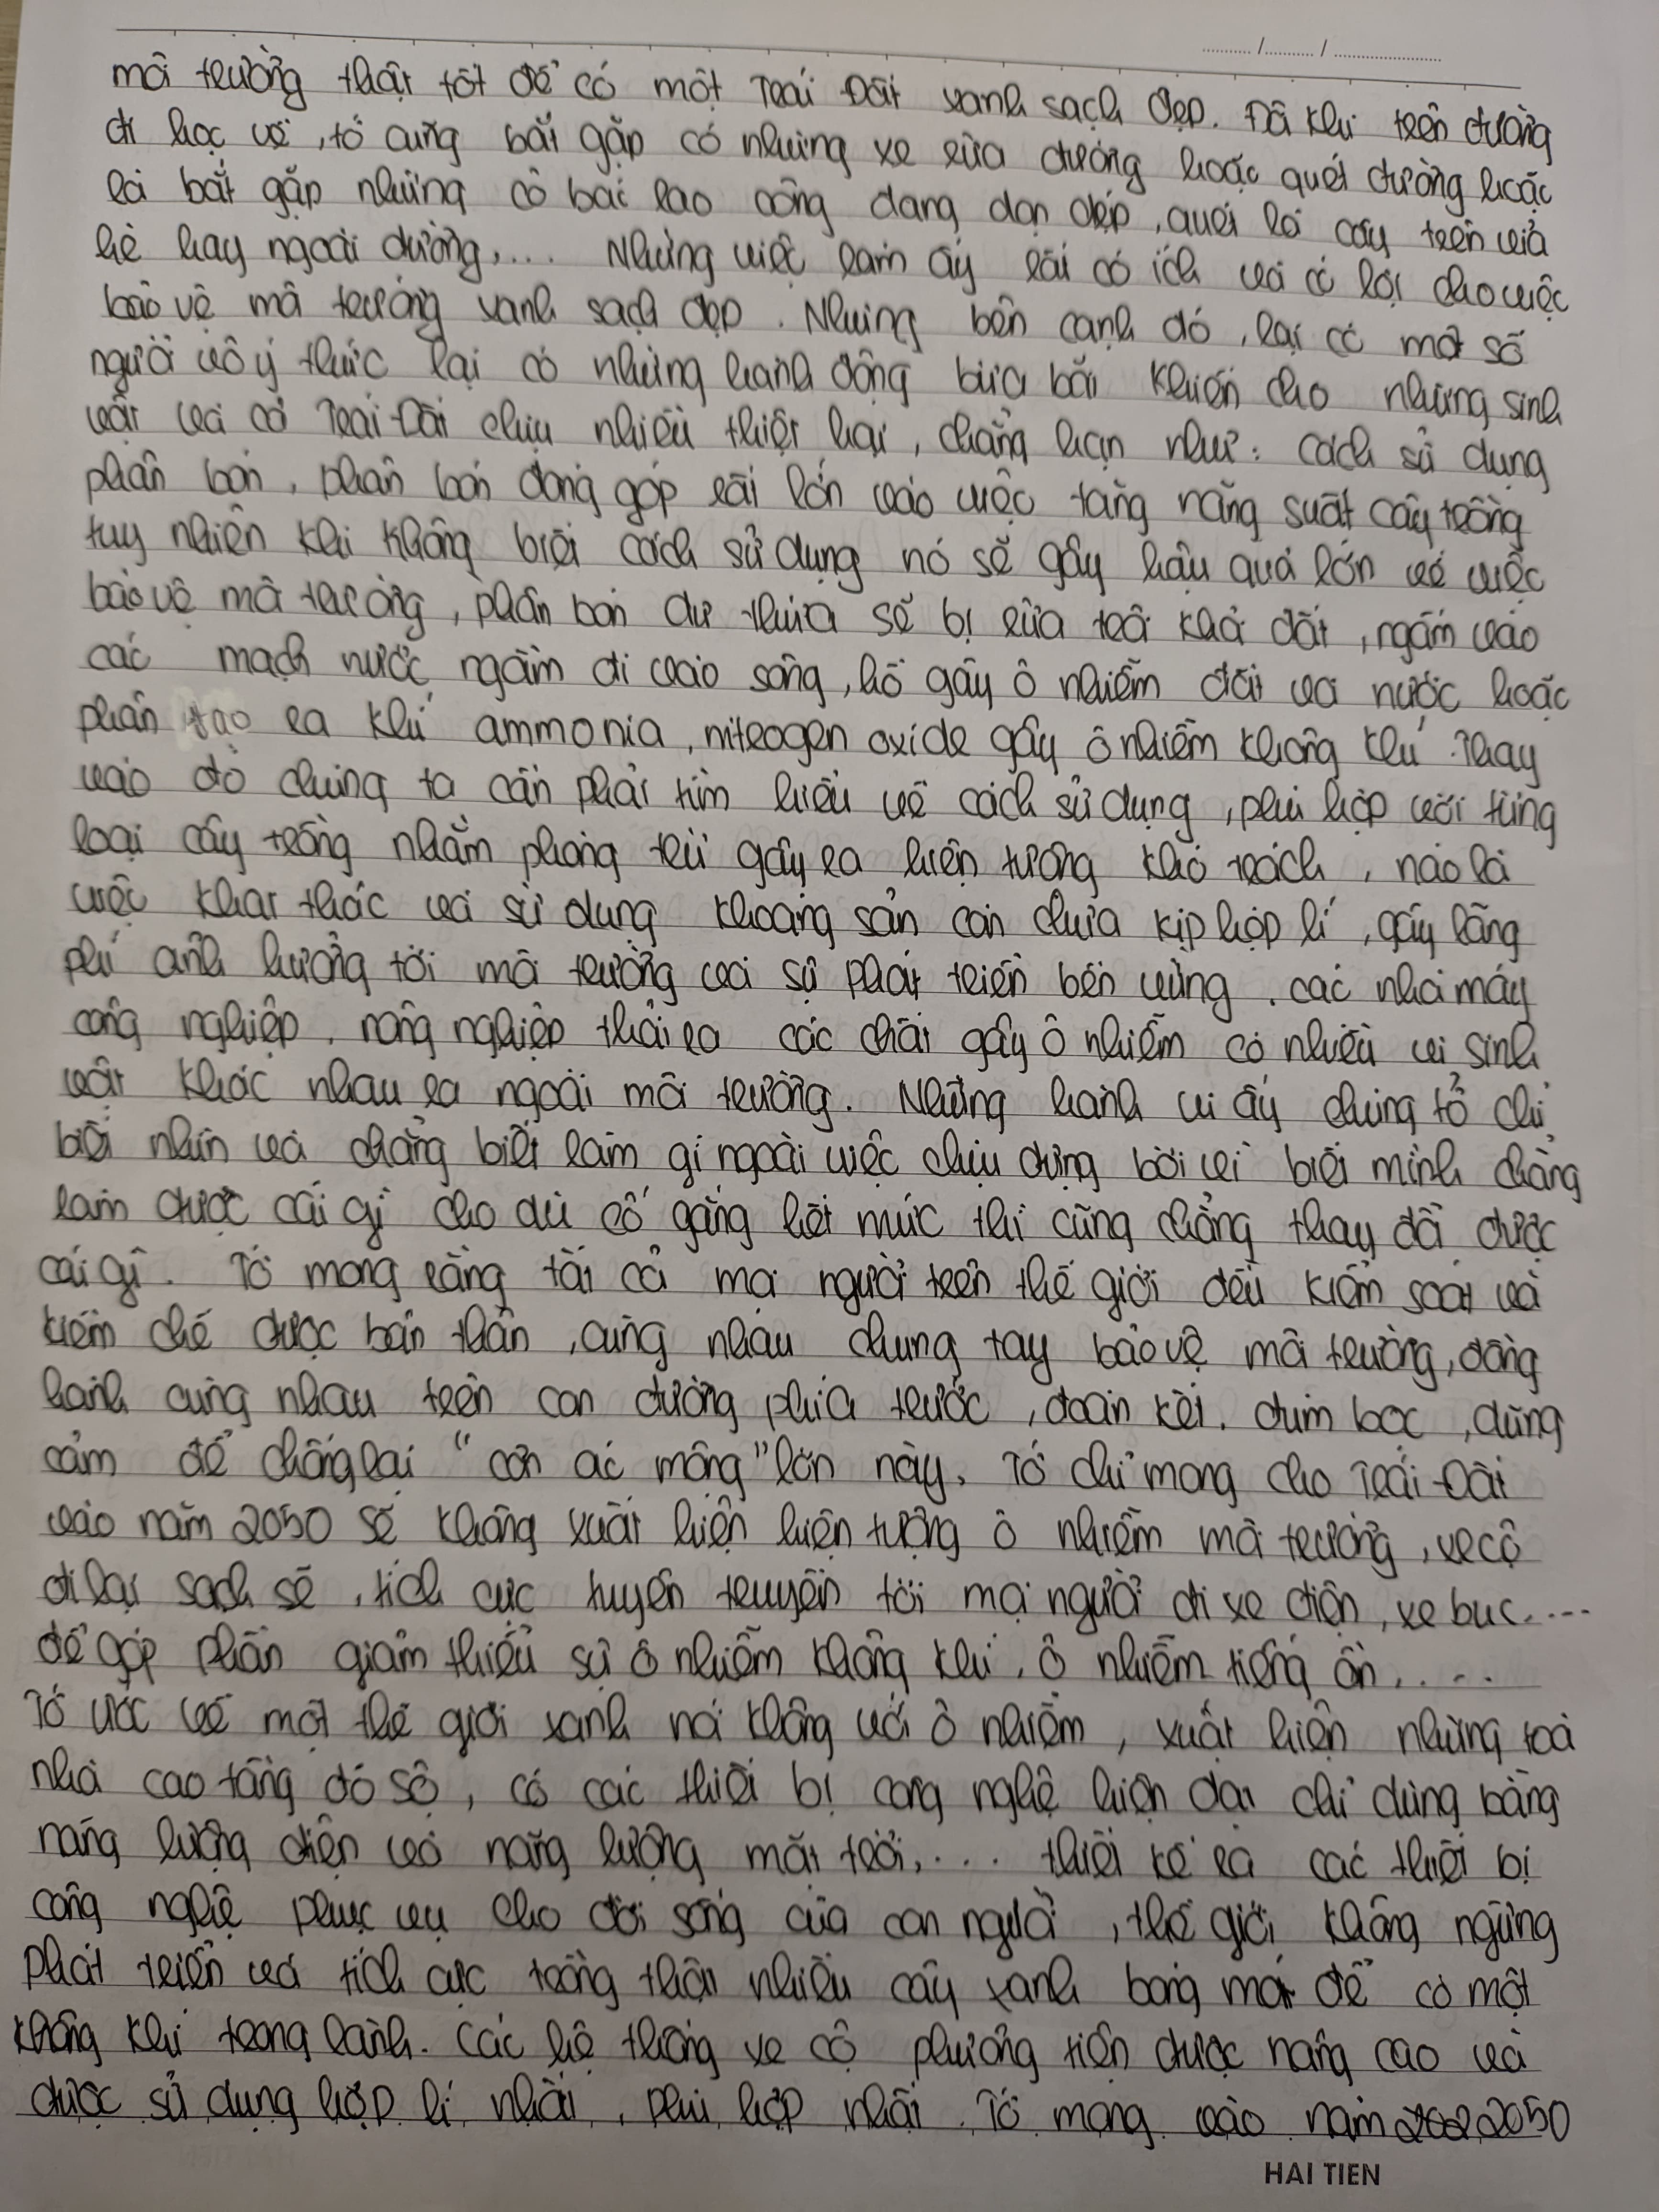 môi trường thật tốt để có một Trái Đất xanh sạch đẹp. Đôi khi trên đường
đi học về, tớ cũng bắt gặp có những xe rửa đường hoặc quét đường hoặc
là bắt gặp những cô bác lao công đang dọn dẹp, quét lá cây trên vỉa
hè hay ngoài đường,... Những việc làm ấy rất có ích và có lợi cho việc
bảo vệ môi trường xanh sạch đẹp. Nhưng bên cạnh đó, lại có một số
người vô ý thức lại có những hành động bừa bãi khiến cho những sinh
vật và cả Trái Đất chịu nhiều thiệt hại, chẳng hạn như: cách sử dụng
phân bón, phân bón đóng góp rất lớn vào việc tăng năng suất cây trồng
tuy nhiên khi không biết cách sử dụng nó sẽ gây hậu quả lớn về việc
bảo vệ môi trường, phân bón dư thừa sẽ bị rửa trôi khỏi đất, ngấm vào
các mạch nước ngầm đi vào sông, hồ gây ô nhiễm đất và nước hoặc
phân tạo ra khí ammonia, nitrogen oxide gây ô nhiễm không khí. Thay
vào đó chúng ta cần phải tìm hiểu về cách sử dụng, phù hợp với từng
loại cây trồng nhằm phòng trừ gây ra hiện tượng khó trách, nào là
việc khai thác và sử dụng khoáng sản còn chưa kịp hợp lí, gây lãng
phí ảnh hưởng tới môi trường và sự phát triển bền vững. các nhà máy
công nghiệp, nông nghiệp thải ra các chất gây ô nhiễm có nhiều vi sinh
vật khác nhau ra ngoài môi trường. Những hành vi ấy chứng tỏ chỉ
biết nhìn và chẳng biết làm gì ngoài việc chịu đựng bởi vì biết mình chẳng
làm được cái gì cho dù cố gắng hết mức thì cũng chẳng thay đổi được
cái gì. Tớ mong rằng tất cả mọi người trên thế giới đều kiểm soát và
kiềm chế được bản thân, cùng nhau chung tay bảo vệ môi trường, đồng
hành cùng nhau trên con đường phía trước, đoàn kết, đùm bọc, dũng
cảm để chống lại "cơn ác mộng" lớn này. Tớ chỉ mong cho Trái Đất
vào năm 2050 sẽ không xuất hiện hiện tượng ô nhiễm môi trường, xe cộ
đi lại sạch sẽ, tích cực tuyên truyền tới mọi người đi xe điện, xe buc....
để góp phần giảm thiểu sự ô nhiễm không khí, ô nhiễm tiếng ồn....
Tớ ước về một thế giới xanh nói không với ô nhiễm, xuất hiện những toà
nhà cao tầng đồ sộ, có các thiết bị công nghệ hiện đại chỉ dùng bằng
năng lượng điện và năng lượng mặt trời,... thiết kế ra các thiết bị
công nghệ phục vụ cho đời sống của con người, thế giới không ngừng
phát triển và tích cực trồng thật nhiều cây xanh bóng mát để có một
không khí trong lành. Các hệ thống xe cộ phương tiện được nâng cao và
được sử dụng hợp lí nhất, phù hợp nhất. Tớ mong vào năm 2050
HAI TIEN